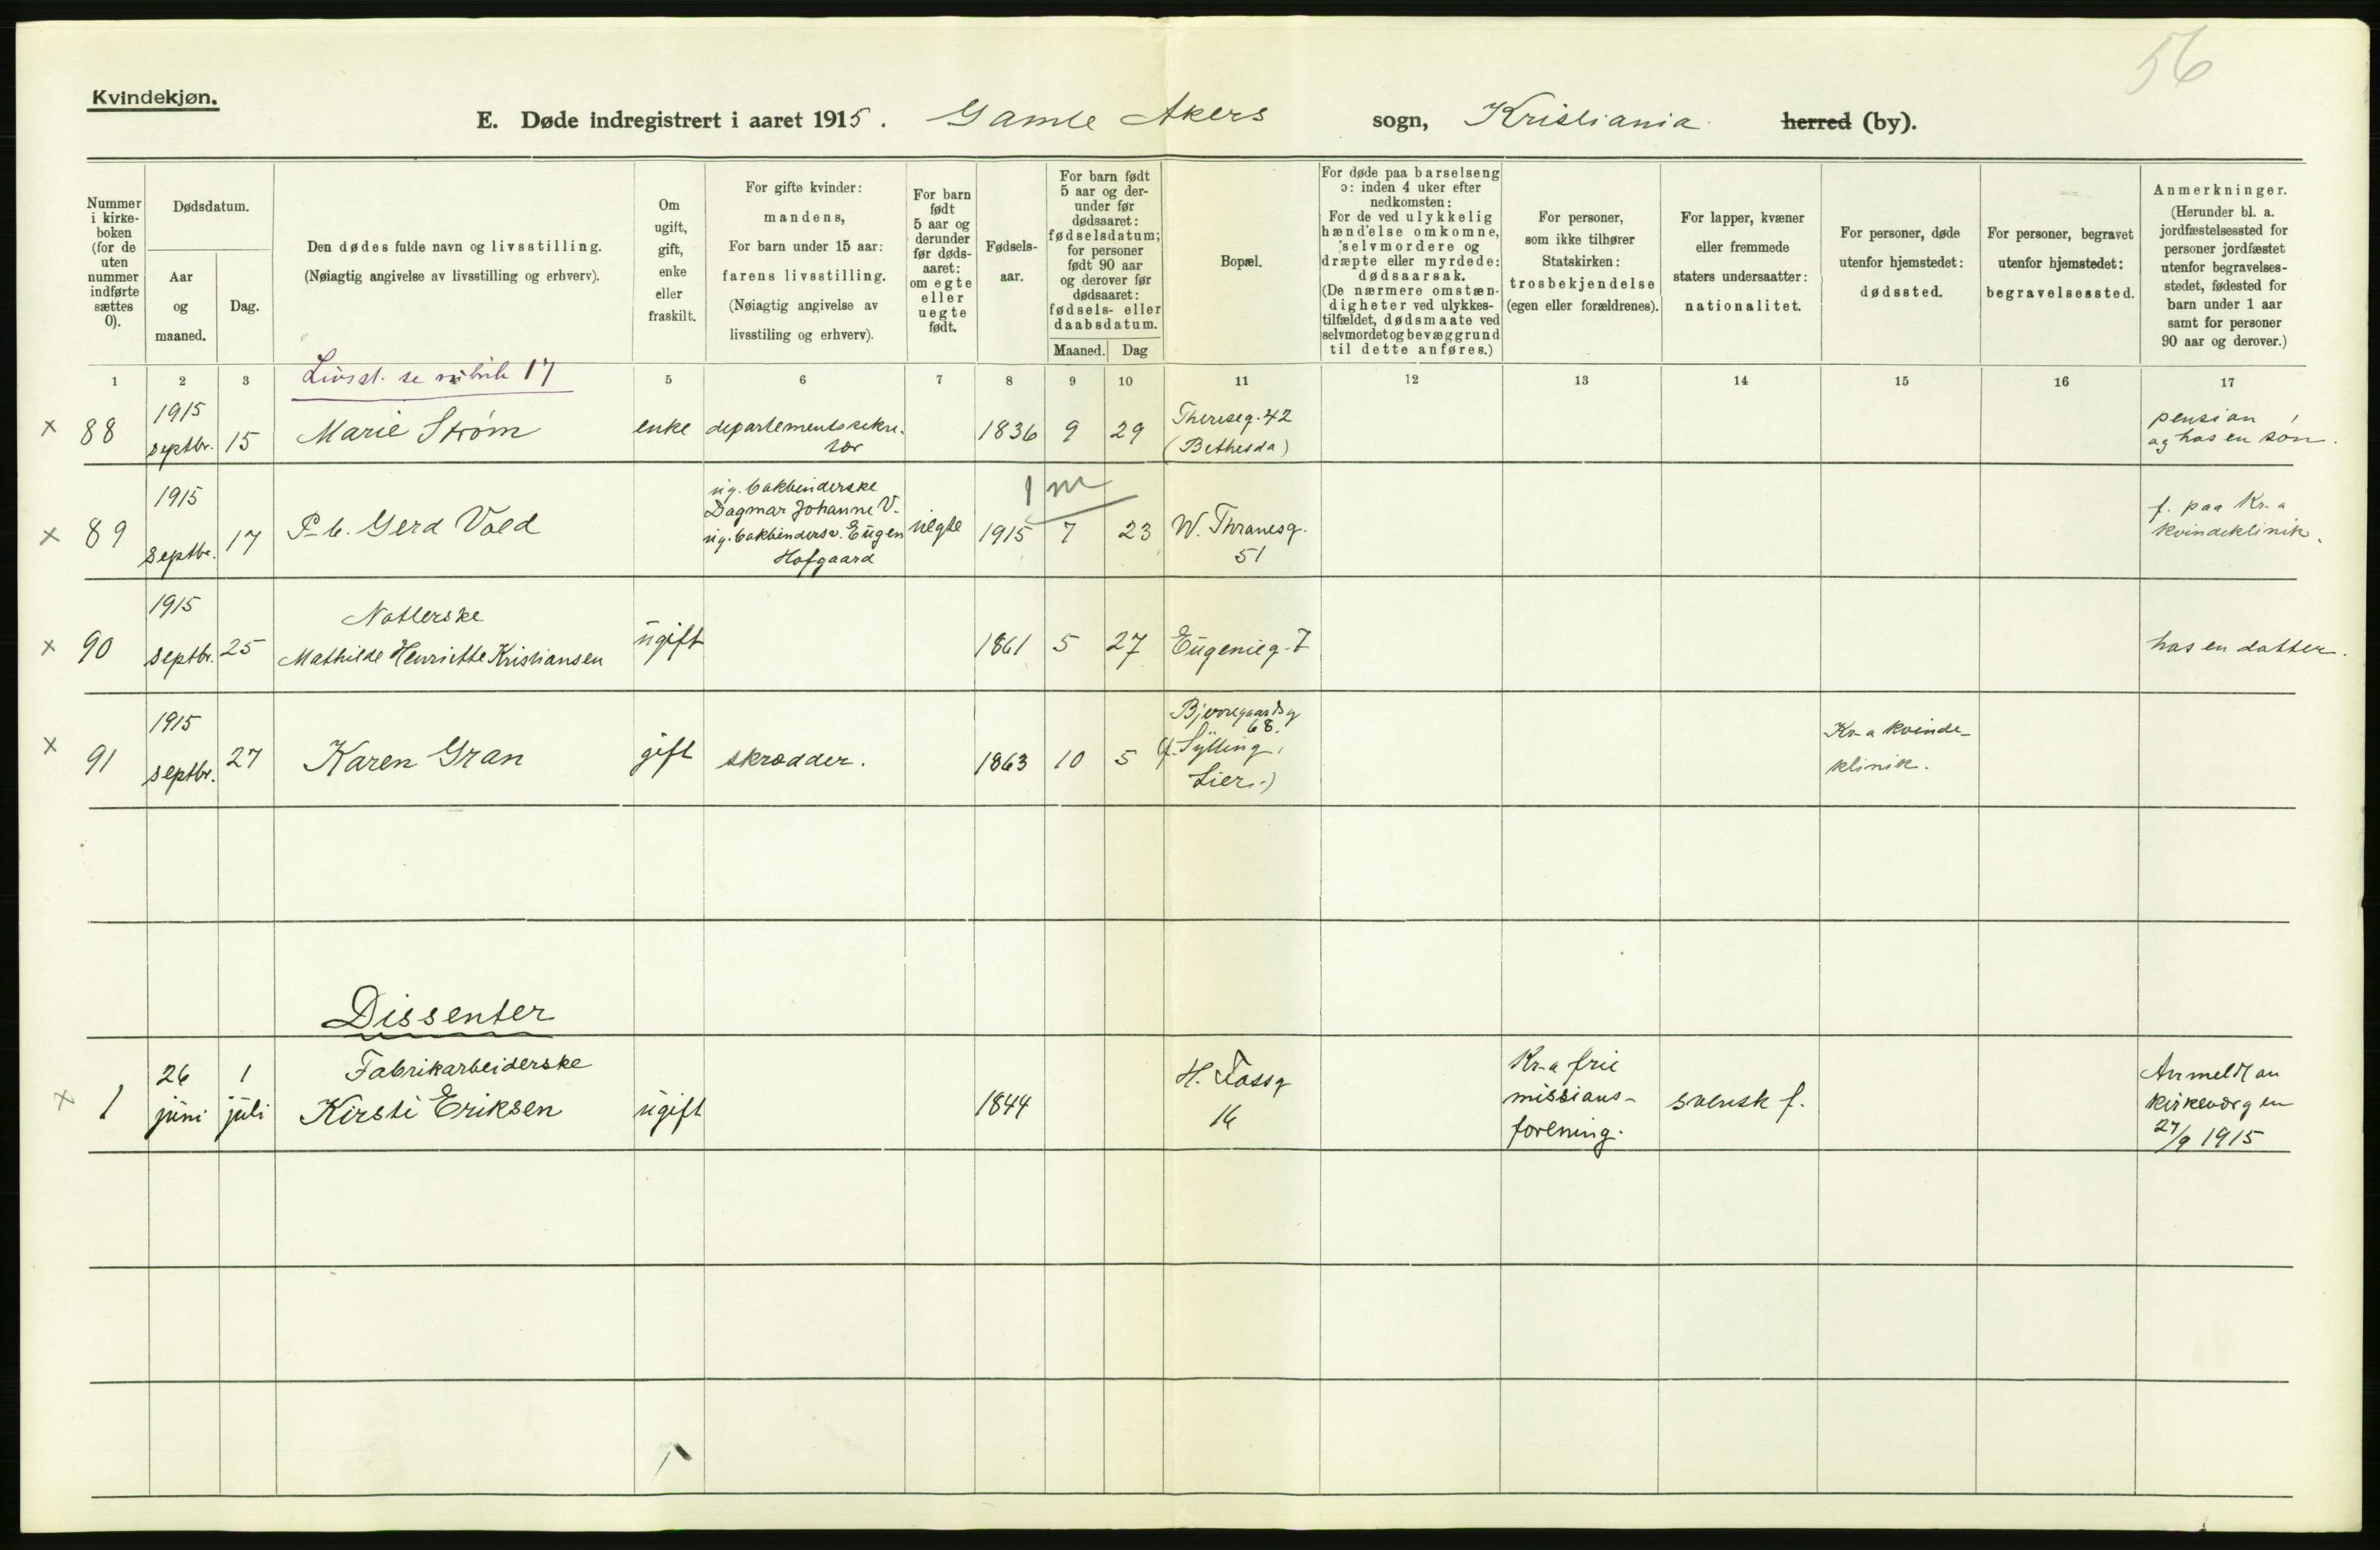 56
Kvindekjøn.
E. Døde indregistrert i aaret 1915. Gamle Akers sogn, Kristiania herred (by).
Nummer i kirke- boken (for de uten nummer indførte sættes 0).
Dødsdatum.
Aar og maaned.
Dag.
Den dødes fulde navn og livsstilling.
(Nøiagtig angivelse av livsstilling og erhverv).
Om ugift, gift, enke eller fraskilt.
For gifte kvinder:
mandens,
For barn under 15 aar:
farens livsstilling.
(Nøiagtig angivelse av
livsstiling og erhverv).
For barn født 5 aar og derunder før døds- aaret: om egte eller uegte født.
Fødsels- aar.
For barn født 5 aar og der- under før dødsaaret: fødselsdatum; for personer født 90 aar og derover før dødsaaret: fødsels- eller daabsdatum.
Maaned. Dag
Bopæl.
For døde paa barselseng
ɔ: inden 4 uker efter
nedkomsten:
For de ved ulykkelig
hændelse omkomne,
selvmordere og
dræpte eller myrdede:
dødsaarsak.
(De nærmere omstæn-
digheter ved ulykkes-
tilfældet, dødsmaate ved
selvmordet og bevæggrund
til dette anføres.)
For personer,
som ikke tilhører
Statskirken:
trosbekjendelse
(egen eller forældrenes).
For lapper, kvæner
eller fremmede
staters undersaatter:
nationalitet.
For personer, døde
utenfor hjemstedet:
dødssted.
For personer, begravet
utenfor hjemstedet:
begravelsessted.
Anmerkninger.
(Herunder bl. a.
jordfæstelsessted for
personer jordfæstet
utenfor begravelses-
stedet, fødested for
barn under 1 aar
samt for personer
90 aar og derover.)
1 2 3 Livsst. se rubrik 17 5 6 7 8 9 10 11 12 13 14 15 16 17
× 88 1915 septbr. 15 Marie Strøm enke departementssekre-
tær 1836 9 29 Thereseg. 42
(Bethesda) pension,
og hos en søn.
1 m
× 89 1915 septbr. 17 P-b. Gerd Vold ug. bokbinderske
Dagmar Johanne V.
ug. bokbindersv. Eugen
Hofgaard uegte 1915 7 23 W. Thranesg.
51 f. paa Kr-a
kvindeklinik.
× 90 1915 septbr. 25 Natlerske
Mathilde Henriette Kristiansen ugift 1861 5 27 Eugenieg. 7 hos en datter.
× 91 1915 septbr. 27 Karen Gran gift skrædder. 1863 10 5 Bjerregaardsg
68.
(f. Sylling,
Lier.) Kr-a kvinde-
klinik.
Dissenter
× 1 26 juni 1 juli Fabrikarbeiderske
Kirsti Eriksen ugift 1844 H. Tossg
16 Kr-a frie
missions-
forening. svensk f. Anmeldt av
kirkeværgen
27/9 1915